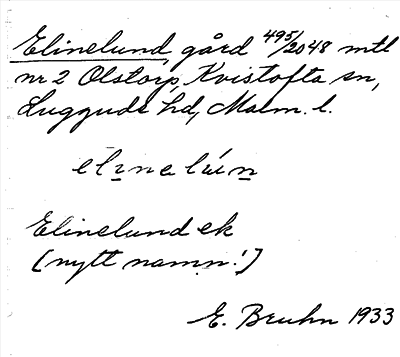 Elinelund, gård 495/2048 mtl
nr 2 Olstorp, Kvistofta sn,
Luggude hd, Malm. l.
Elinelund ek
[nytt namn!]
E. Bruhn 1933